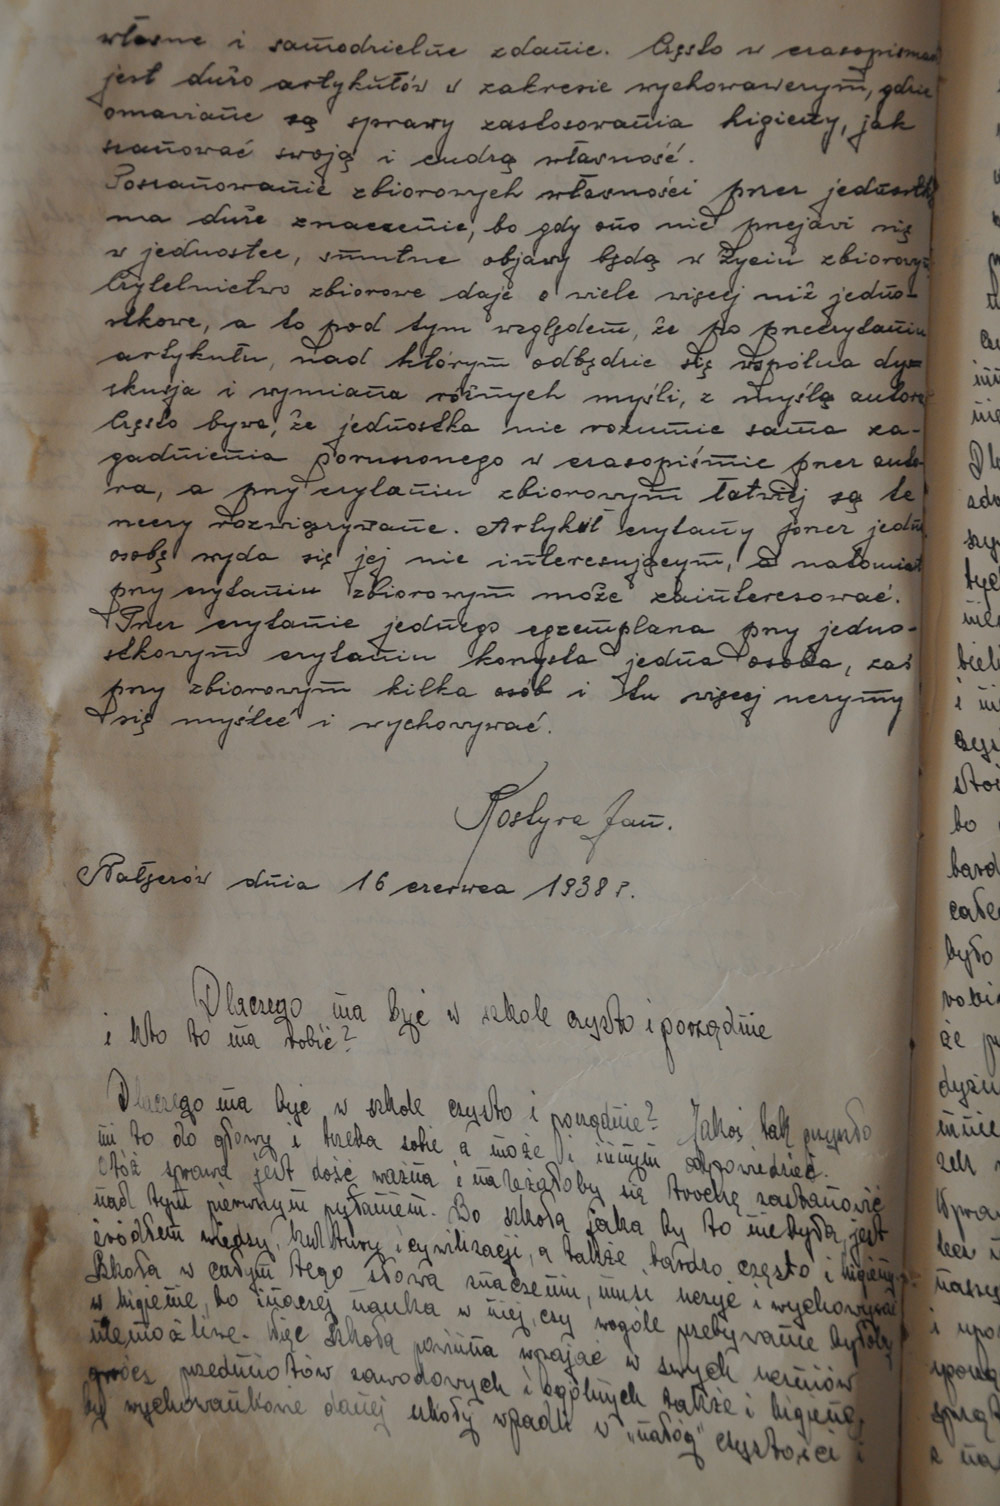 własne i samodzielne zdanie. Często w czasopismach
jest dużo artykułów w zakresie wychowawczym, gdzie
omawiane są sprawy zastosowania higieny, jak
szanować swoją i cudzą własność.
Poszanowanie zbiorowych własności przez jednostkę
ma duże znaczenie, bo gdy ono nie przejawi się
w jednostce, smutne objawy będą w życiu zbiorowym
Czytelnictwo zbiorowe daje o wiele więcej niż jedno-
stkowe, a to pod tym względem, że po przeczytaniu
artykułu, nad którym odbędzie się wspólna dy=
skusja i wymiana różnych myśli, z myślą autora
Często bywa, że jednostka nie rozumie sama za-
gadnienia poruszonego w czasopiśmie przez auto-
ra, a przy czytaniu zbiorowym łatwiej są te
rzeczy rozwiązywane. Artykuł czytany przez jedną
osobę wyda się jej nie interesującym, a natomiast
przy czytaniu zbiorowym może zainteresować.
Przez czytanie jednego egzemplarza przy jedno-
stkowym czytaniu korzysta jedna osoba, zaś
przy zbiorowym kilka osób i tu więcej uczymy
się myśleć i wychowywać.
Kostyra Jan.
Nałęczów dnia 16 czerwca 1938 r.
Dlaczego ma być w szkole czysto i porządnie
i kto to ma robić?
Dlaczego ma być w szkole czysto i porządnie? Jakoś tak przyszło
mi to do głowy i trzeba sobie a może i innym odpowiedzieć.
Otóż sprawa jest dość ważna i należałoby się trochę zastanowić
nad tym pierwszym pytaniem. Bo szkoła jaka by to nie była, jest
źródłem wiedzy, kultury i cywilizacji, a także bardzo często i higieny.
Szkoła w całym tego słowa znaczeniu, musi uczyć i wychowywać
w higienie, bo inaczej nauka w niej, czy wogóle przebywanie byłoby
niemożliwe. Więc szkoła powinna wpajać w swych uczniów
oprócz przedmiotów zawodowych i ogólnych także i higienę,
by wychowankowie danej szkoły wpadli w „nałóg" czystości i